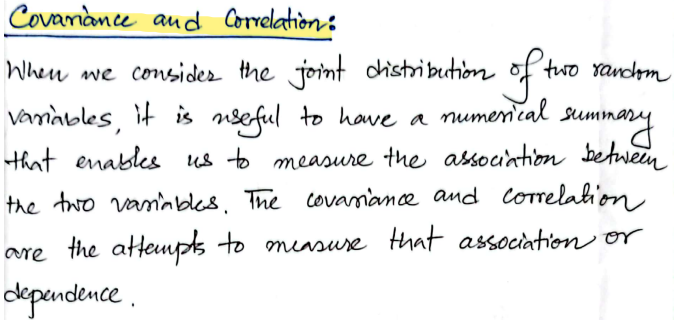 Covariance and Correlation:
When we consider the joint distribution of two random
variables, it is useful to have a numerical summary
that enables us to measure the association between
the two variables. The covariance and correlation
are the attempts to measure that association or
dependence.